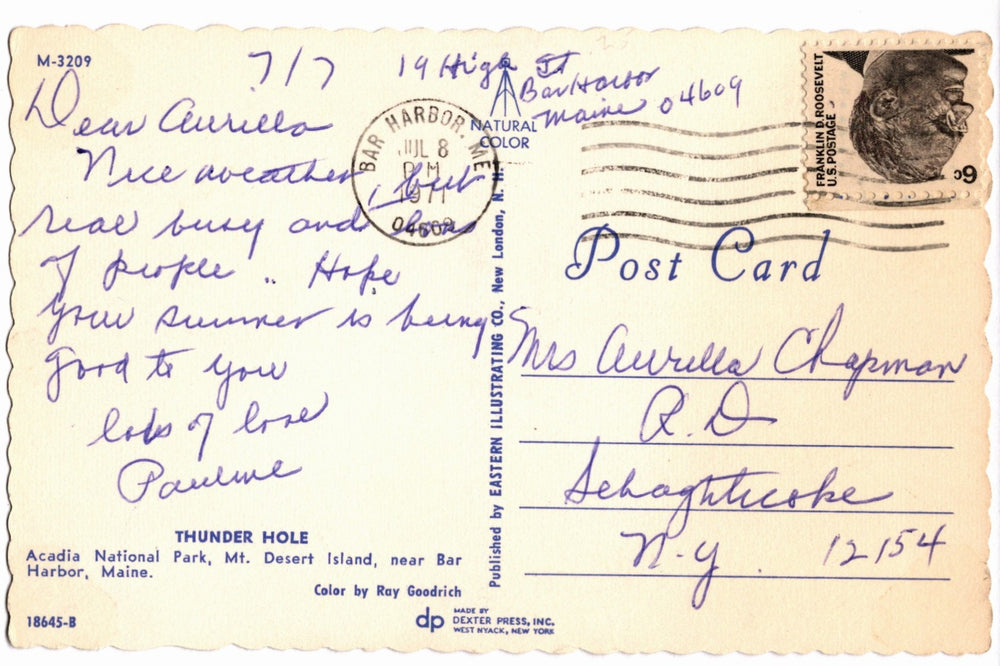 M-3209
7/7 19 High St
Bar Harbor
Maine 04609
Dear Aurilla
Nice weather, but
real busy and lots
of people .. Hope
your summer is being
good to you
lots of love
Pauline
THUNDER HOLE
Acadia National Park, Mt. Desert Island, near Bar
Harbor, Maine.
Color by Ray Goodrich
18645-B
NATURAL
COLOR
BAR HARBOR, ME
JUL 8
PM
1971
04609
Published by EASTERN ILLUSTRATING CO., New London, N. H.
dp MADE BY
DEXTER PRESS, INC.
WEST NYACK, NEW YORK
FRANKLIN D. ROOSEVELT
U.S. POSTAGE
6c
Post Card
Mrs Aurilla Chapman
R.D
Schaghticoke
N-Y 12154